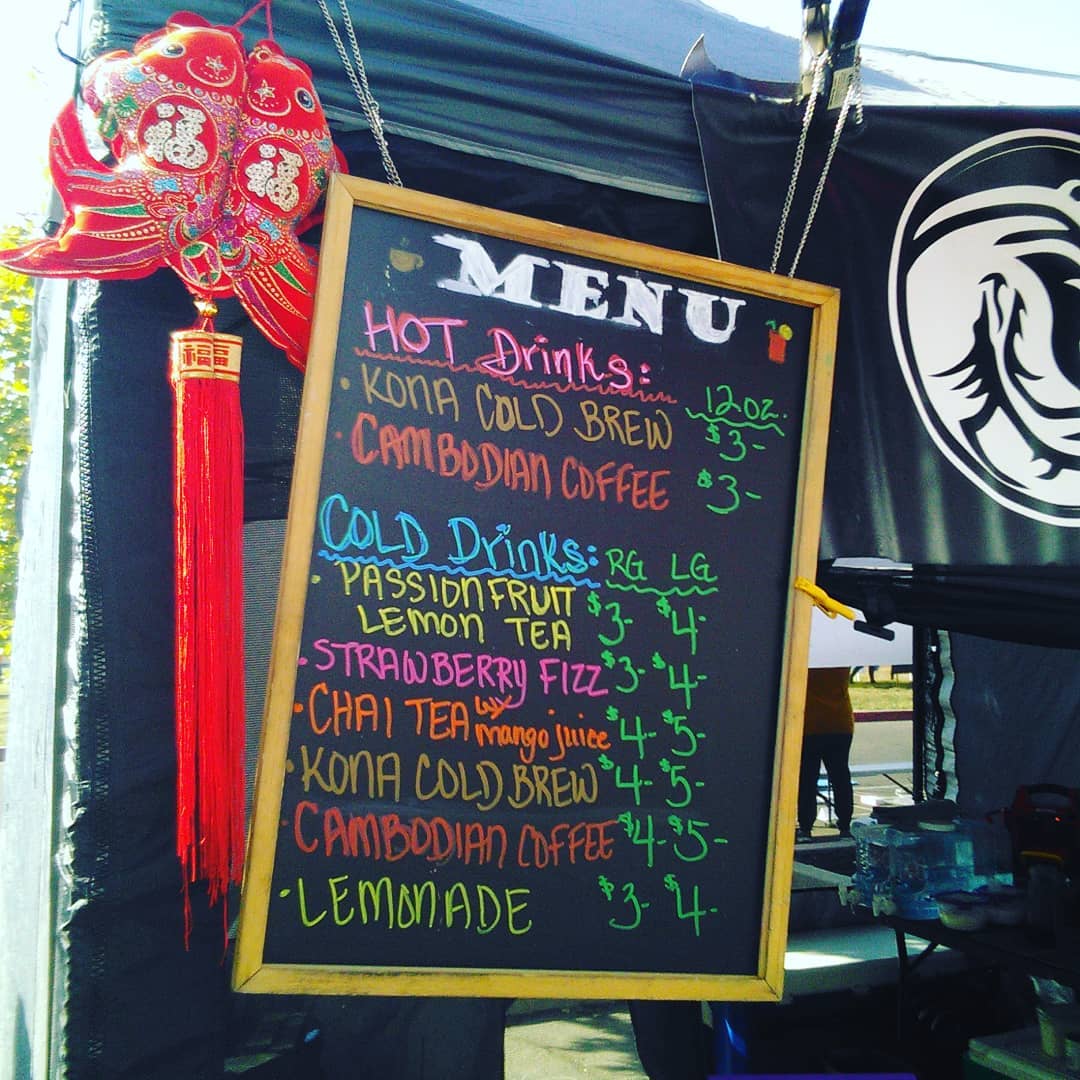 福
福
福福
MENU
HOT Drinks:
12 oz.
• KONA COLD BREW $3-
• CAMBODIAN COFFEE $3-
COLD Drinks: RG LG
• PASSION FRUIT
LEMON TEA $3- $4-
• STRAWBERRY FIZZ $3- $4-
• CHAI TEA w/ mango juice $4- $5-
• KONA COLD BREW $4- $5-
• CAMBODIAN COFFEE $4- $5-
• LEMONADE $3- $4-